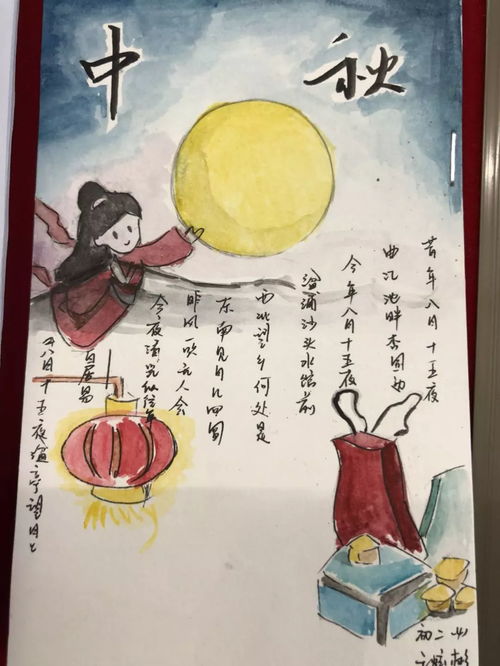 中秋
昔年八月十五夜
曲江池畔杏园边
今年八月十五夜
湓浦沙头水馆前
西北望乡何处是
东南见月几回圆
昨风一吹无人会
今夜清光似往年
白居易
《八月十五夜湓亭望月》
初二